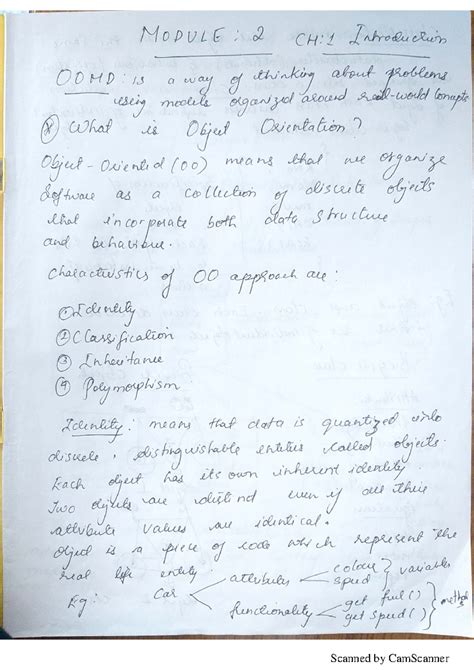 MODULE : 2 CH:1 Introduction
OOMD : is a way of thinking about problems
using models organized around real-world concepts
* What is Object Orientation?
Object-Oriented (OO) means that we organize
Software as a collection of discrete objects
that incorporate both data structure
and behaviour.
Characteristics of OO approach are :
① Identity
② Classification
③ Inheritance
④ Polymorphism
Identity : means that data is quantized into
discrete, distinguishable entities called objects.
Each object has its own inherent identity.
Two objects are distind even if all their
attribute values are identical.
Object is a piece of code which represent the
real life entity.
Eg: Car attributes colour speed } variables
functionality get fuel() get speed() } methods
Scanned by CamScanner